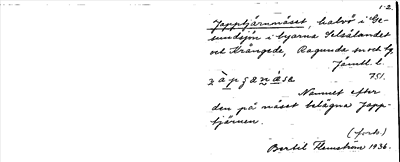 1-2.
Japptjärnnäset, halvö i Ge-
sundsjön i byarna Selsålandet
och Krångede, Ragunda sn och tg
Jämtl. l.
751.
Namnet efter
den på näset belägna Japp-
tjärnen.
(forts.)
Bertil Flemström 1936.